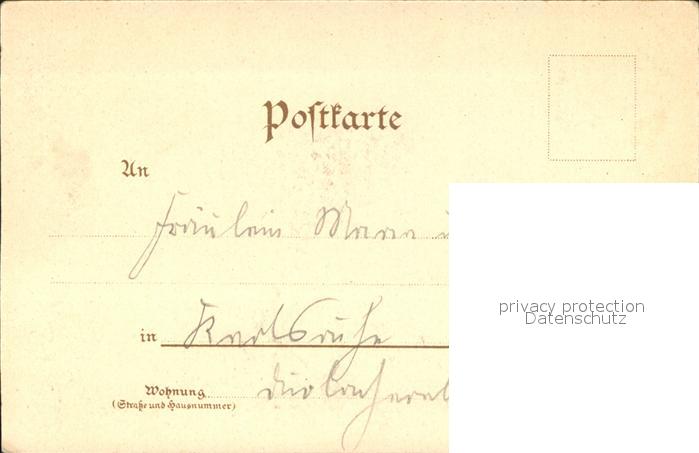 Postkarte
An
Fräulein
in Karlsruhe
Wohnung
(Straße und Hausnummer)
privacy protection
Datenschutz